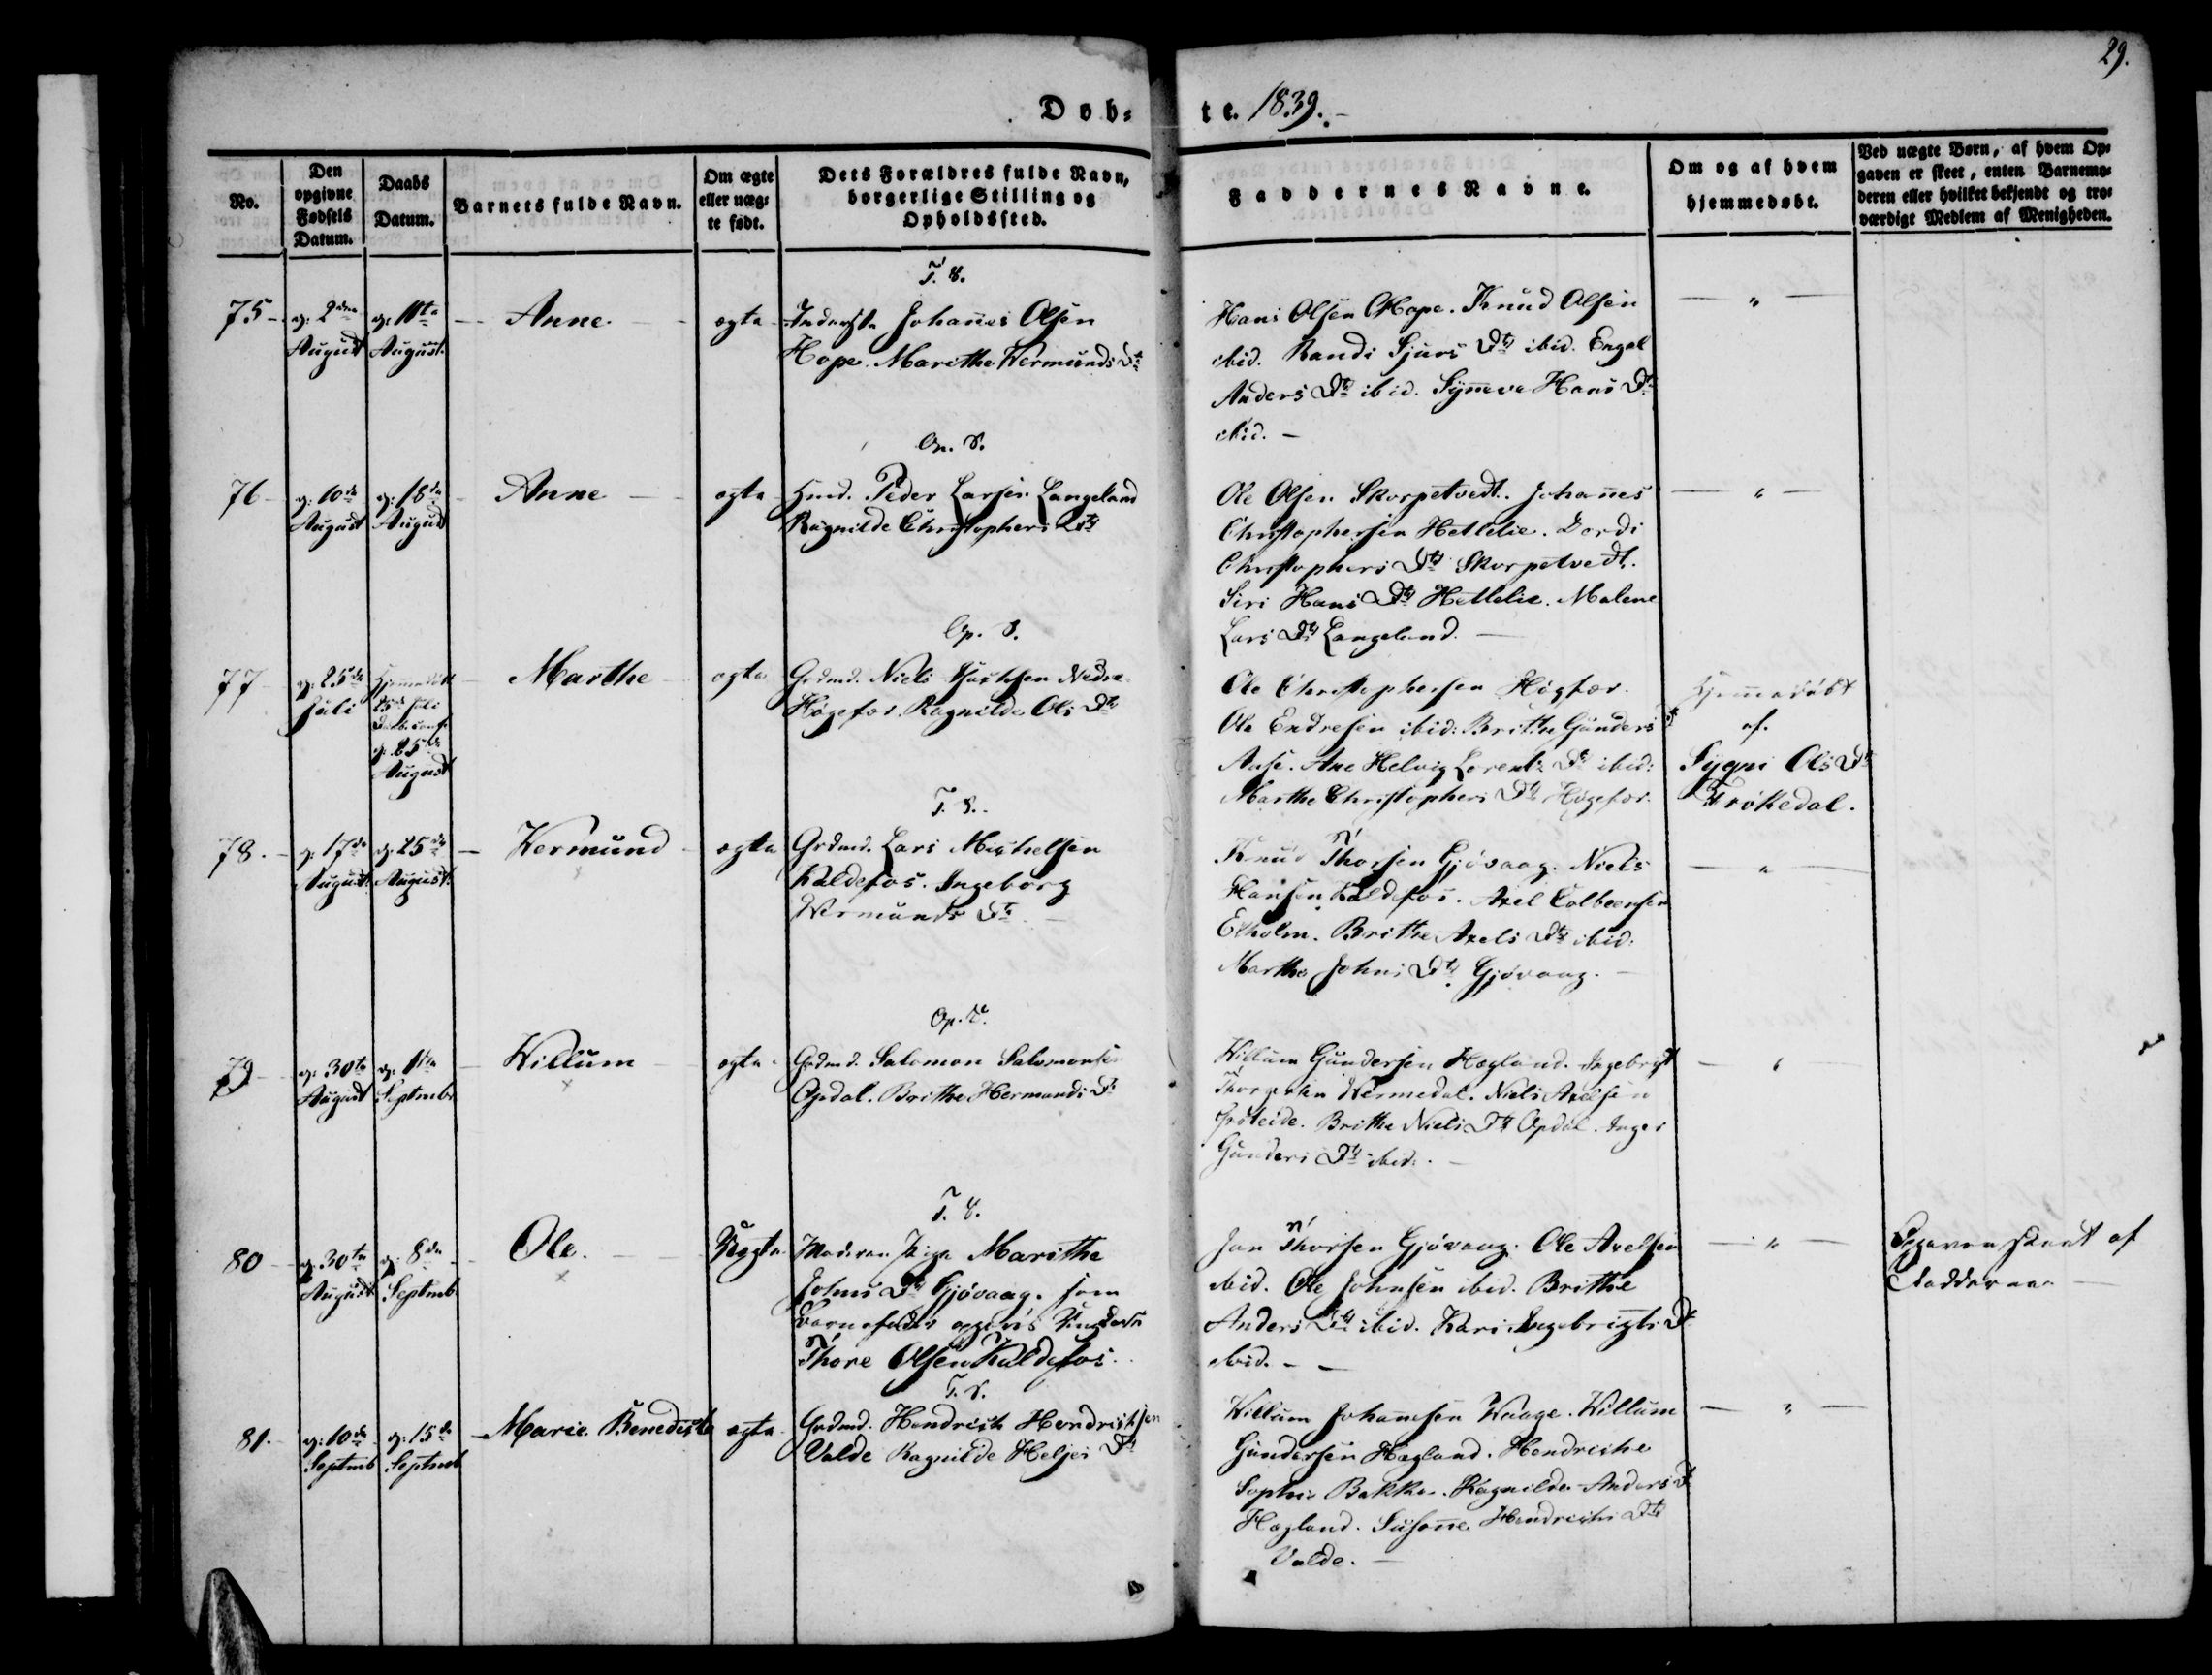 29.
Døb-
te. 1839.
No.
Den
opgivne
Fødsels
Datum.
Daabs
Datum.
Barnets fulde Navn.
Om ægte
eller uæg-
te født.
Dets Forældres fulde Navn,
borgerlige Stilling og
Opholdssted.
Faddernes Navne.
Om og af hvem
hjemmedøbt.
Ved uægte Børn, af hvem Op-
gaven er skeet, enten Barnemo-
deren eller hvilket bekjendt og tro-
værdigt Medlem af Menigheden.
T. S.
75 - d: 2den
August
d: 11te
August.
Anne.
ægte
Johannes Olsen
Hope. Marithe Wermunds Dtr
Hans Olsen Hope. Knud Olsen
ibid. Randi Sjurs Dtr ibid. Engel
Anders Dtr ibid. Synneva Hans Dtr
ibid. -
"
76 - d: 10de
August
d: 18de
August
Anne
ægte
Huusmd. Peder Larsen Langeland
Ragnilde Christophers Dtr
Ole Olsen Skorpetvedt. Johannes
Christophersen Hetlelie. Dordi
Christophers Dtr Skorpetvedt.
Siri Hans Dtr Hetlelie. Malene
Lars Dtr Langeland.
"
Op. S.
77 d: 25de
Juli
Hjemmedøbt
25de Juli
d: 25de
August
Marthe
ægte
Grdmd. Niels Nedre-
Høgefos. Ragnilde Ols Dtr
Ole Christophersen Høgfos.
Ole Endresen ibid: Brithe Gunders Dtr
Ane Helvig Lorents Dtr ibid:
Marthe Christophers Dtr Høgefos.
Hjemmedøbt
af
Sygni Ols Dtr
Frøkedal.
T. S.
78. - d: 17de
August.
d: 25de
August.
Wermund
x
ægte
Grdmd. Lars Michelsen
Kaldefos. Ingeborg
Wermunds Dtr
Knud Thorsen Gjøvaag. Niels
Hansen Kaldefos. Axel Colbeensen
Elholm. Brithe Axels Dtr ibid:
Marthe Johns Dtr Gjøvaag.
"
Op. S.
79 d: 30te
August
d: 1ste
Septmbr
Willum
x
ægte
Grdmd. Salomon Salomonsen
Opdal. Brithe Hermunds Dtr
Willum Gundersen Hægland. Ingebrigt
Wermedal. Niels Axelsen
Brithe Niels Dtr Opdal. Inger
Gunders Dtr ibid:
"
T. S.
80 d: 30te
August
d: 8de
Septmb
Ole.
x
Uægte
Moderen Pige Marithe
Johns Dtr Gjøvaag. som
Barnefader opgivs Ungkarl
Thore Olsen Kaldefos.
Jon Thorsen Gjøvaag. Ole Axelsen
ibid. Ole Johnsen ibid. Brithe
Anders Dtr ibid. Kari Ingebrigts Dtr
ibid. -
"
Opgaven skeet af
Fadderne
T. S.
81. d: 10de
Septmb
d: 15de
Septmb
Marie Benedicte
ægte
Grdmd. Hendrich Hendrichsen
Valde Ragnilde Heljes Dtr
Willum Johannesen Waage. Willum
Gundersen Hægland. Hendriche
Sophie Bakke. Ragnilde Anders Dtr
Hægland. Susanne Hendrichs Dtr
Valde. -
"